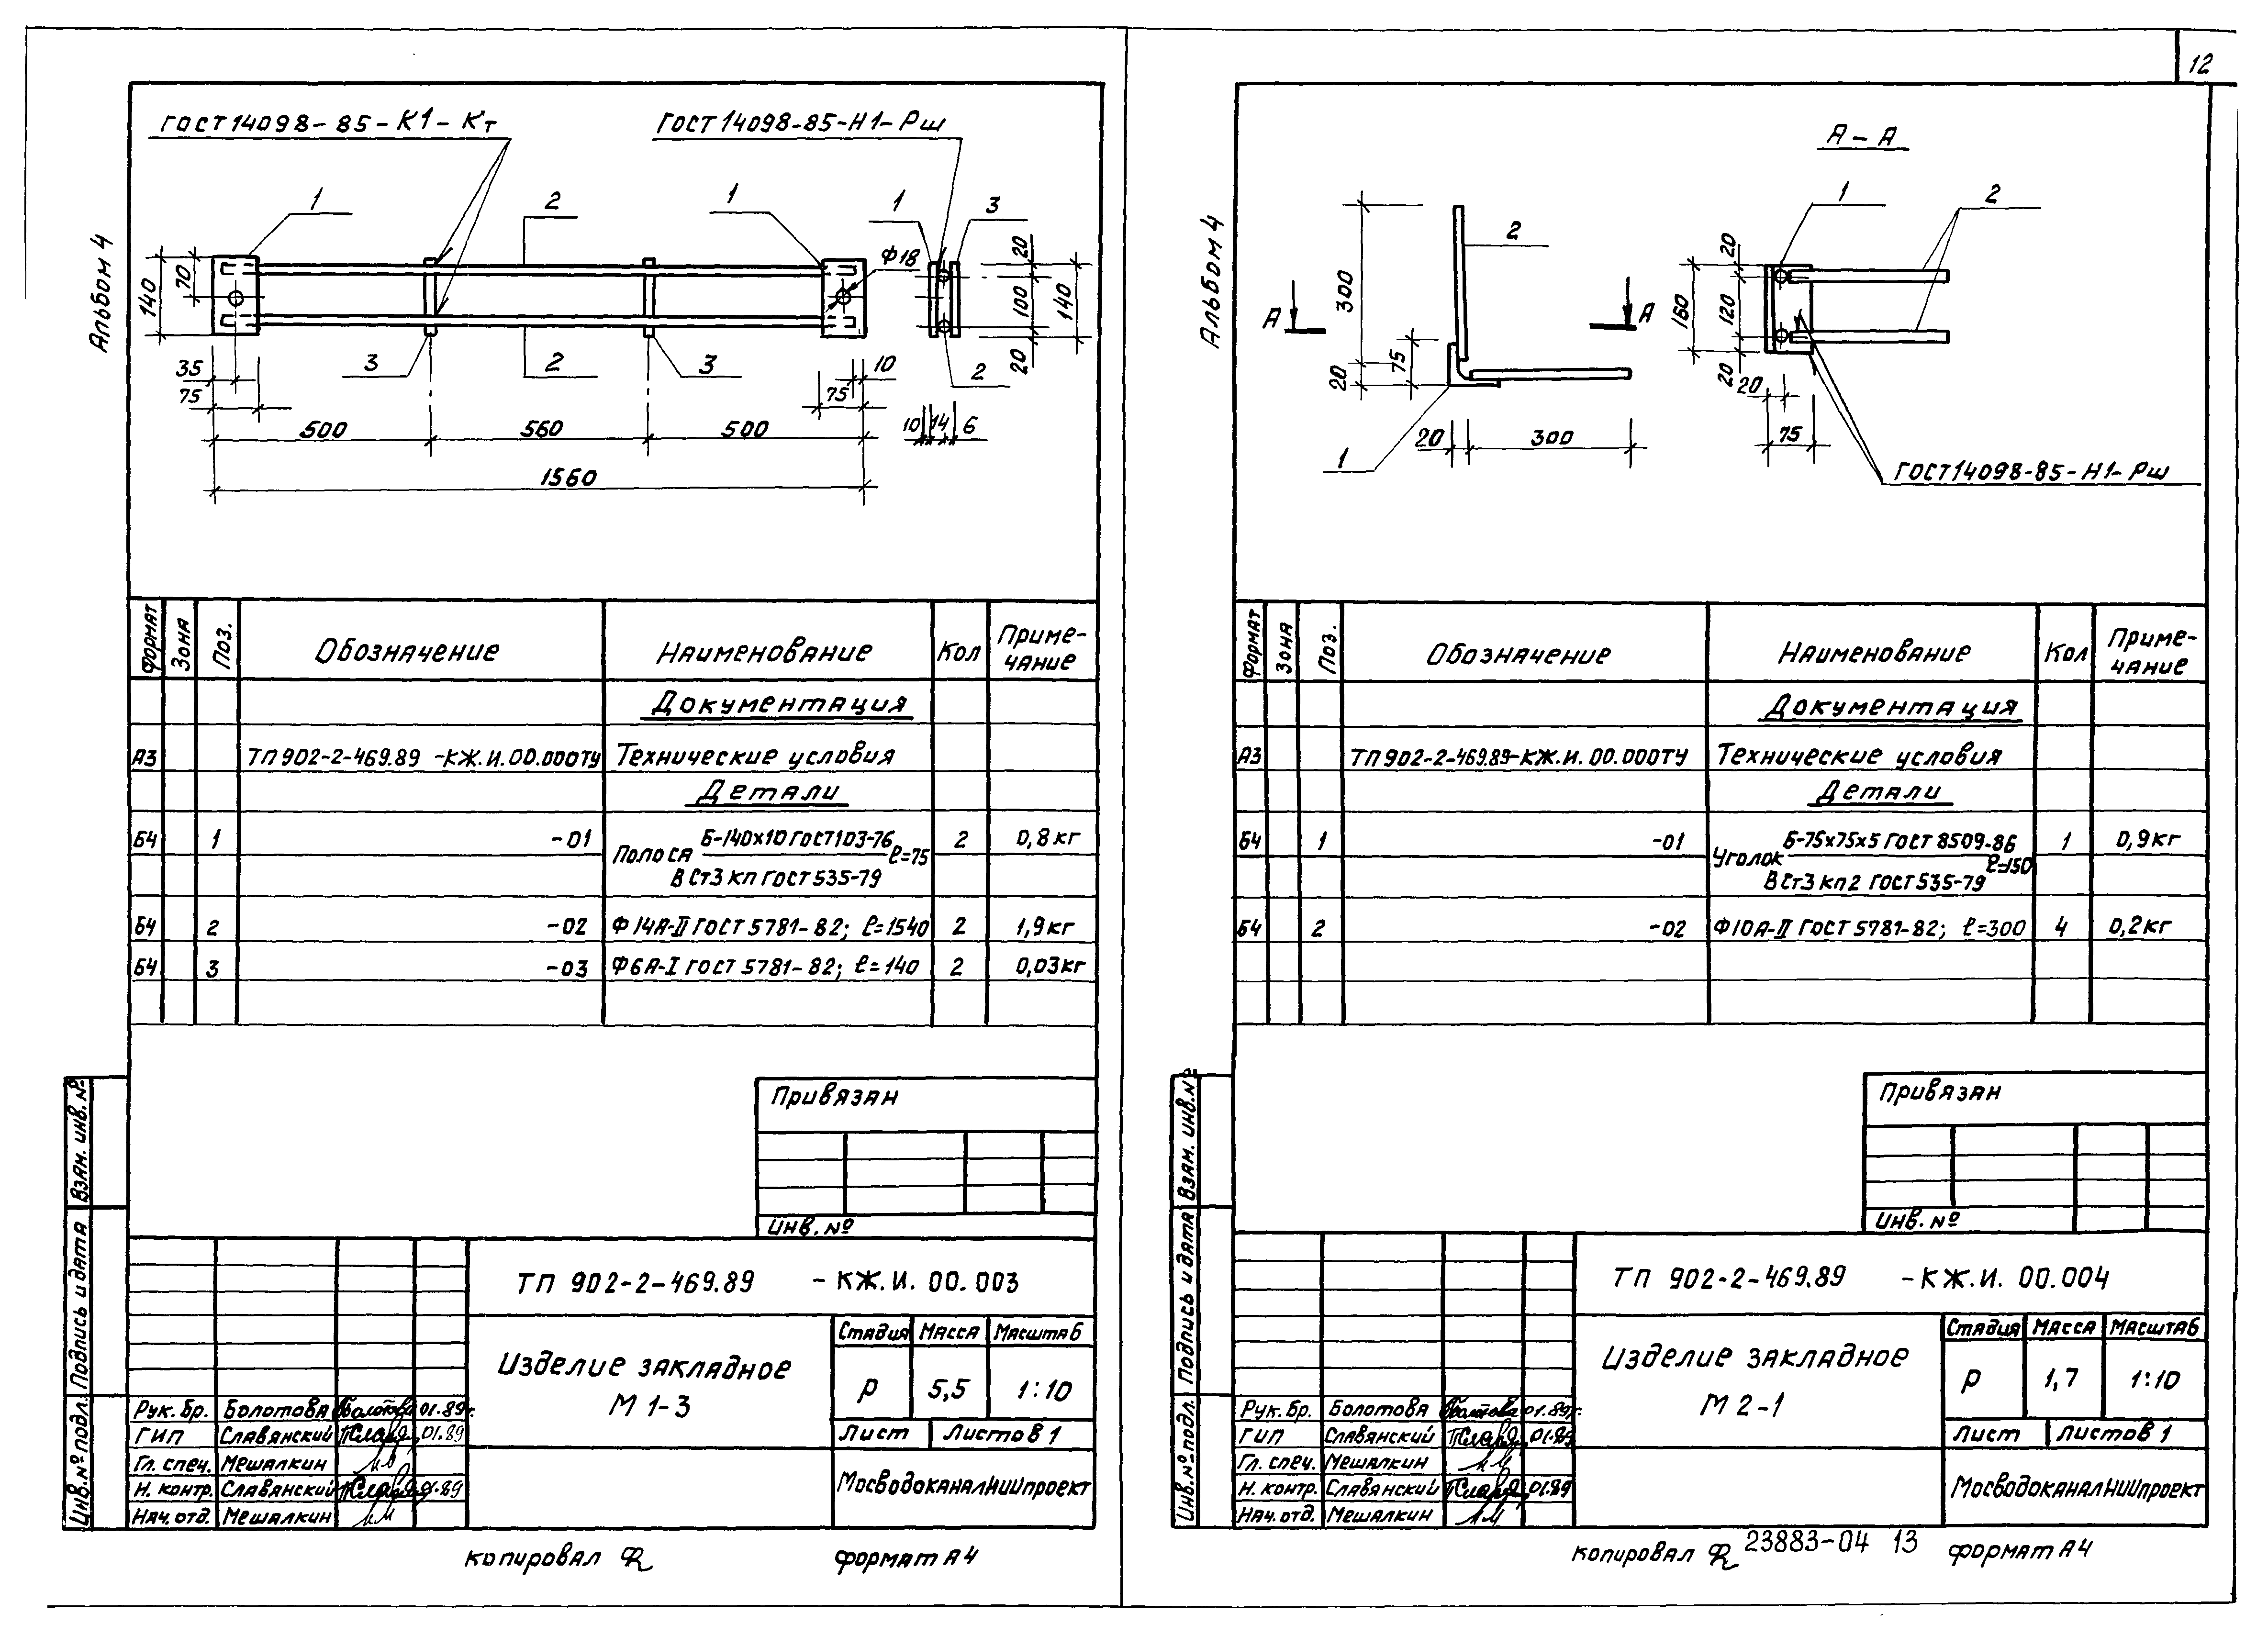 12
Альбом 4
ГОСТ 14098-85-К1-Кт
ГОСТ 14098-85-Н1-Рш
1
2
1
1
3
Ф18
140
70
20
100
140
20
3
2
3
2
35
75
10
75
500
560
500
10
14
6
1560
Формат
Зона
Поз.
Обозначение
Наименование
Кол
Приме-
чание
Документация
А3 ТП 902-2-469.89 -КЖ.И.00.000ТУ Технические условия
Детали
Б4 1 -01 Полоса Б-140х10 ГОСТ 103-76 ℓ=75 2 0,8кг
ВСт3 кп ГОСТ 535-79
Б4 2 -02 Ф14А-II ГОСТ 5781-82; ℓ=1540 2 1,9кг
Б4 3 -03 Ф6А-I ГОСТ 5781-82; ℓ=140 2 0,03кг
Привязан
Инв. №
Взам. инв. №
Подпись и дата
Инв. № подл.
ТП 902-2-469.89 -КЖ.И. 00.003
Изделие закладное
М 1-3
Стадия Масса Масштаб
Р 5,5 1:10
Лист Листов 1
МосводоканалНИИпроект
Рук. бр. Болотова 01.89г.
ГИП Славянский 01.89
Гл. спец. Мешалкин
Н. контр. Славянский 01.89
Нач. отд. Мешалкин
копировал
формат А4
Альбом 4
А-А
300
20
75
2
А
А
1
20
300
1
2
20
160
120
20
20
75
ГОСТ 14098-85-Н1-Рш
Формат
Зона
Поз.
Обозначение
Наименование
Кол
Приме-
чание
Документация
А3 ТП 902-2-469.89-КЖ.И.00.000ТУ Технические условия
Детали
Б4 1 -01 Уголок Б-75х75х5 ГОСТ 8509-86 ℓ=150 1 0,9кг
ВСт3 кп2 ГОСТ 535-79
Б4 2 -02 Ф10А-II ГОСТ 5781-82; ℓ=300 4 0,2кг
Привязан
Инв. №
Взам. инв. №
Подпись и дата
Инв. № подл.
ТП 902-2-469.89 -КЖ.И. 00.004
Изделие закладное
М 2-1
Стадия Масса Масштаб
Р 1,7 1:10
Лист Листов 1
МосводоканалНИИпроект
Рук. бр. Болотова 01.89г.
ГИП Славянский 01.89
Гл. спец. Мешалкин
Н. контр. Славянский 01.89
Нач. отд. Мешалкин
копировал
23883-04 13
формат А4